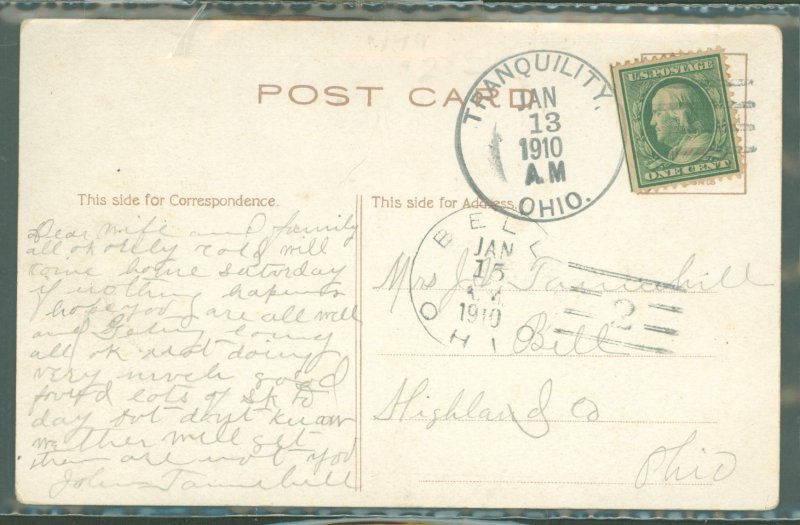 POST CARD
TRANQUILITY,
JAN
13
1910
A.M
OHIO.
U.S. POSTAGE
ONE CENT
This side for Correspondence.
This side for Address.
BELL
JAN
15
1910
OHIO
2
Dear Wife and family
all ok only cold will
come home saturday
if nothing hapens
hope you are all well
and geting along
all ok not doing
very much good
found lots of stk to
day but dont know
wether will get
them are not
John Tannehill
Mrs J Tannehill
Bell
Highland Co
Ohio